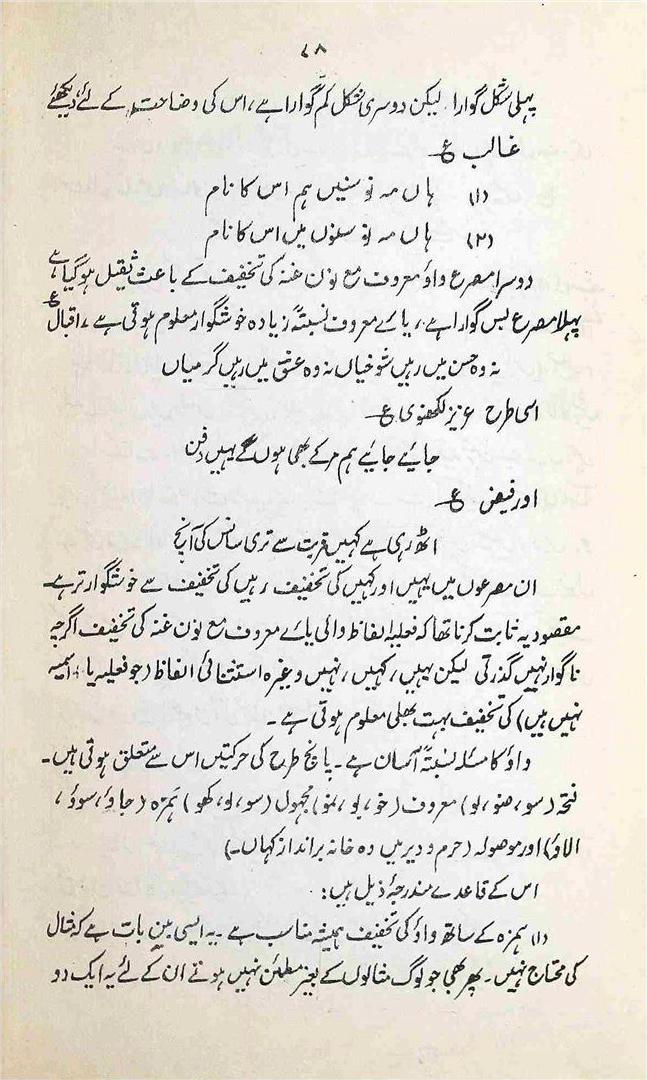 ۷۸
پہلی شکل گوارا لیکن دوسری شکل کم گوارا ہے، اس کی وضاحت کے لئے دیکھئے
غالب ع
(۱) ہاں مہ نو سنیں ہم اس کا نام
(۲) ہاں مہ نو سنوں میں اس کا نام
دوسرا مصرع واؤ معروف مع نون غنہ کی تخفیف کے باعث ثقیل ہو گیا ہے
پہلا مصرع بس گوارا ہے، یائے معروف نسبتہً زیادہ خوشگوار معلوم ہوتی ہے، اقبال ع
نہ وہ حسن میں رہیں شوخیاں نہ وہ عشق میں رہیں گرمیاں
اسی طرح عزیز لکھنوی ع
جائیے جائیے ہم مر کے بھی ہوں گے یہیں دفن
اور فیض ع
اٹھ رہی ہے کہیں قربت سے تری سانس کی آنچ
ان مصرعوں میں یہیں اور کہیں کی تخفیف رہیں کی تخفیف سے خوشگوار تر ہے۔
مقصود یہ ثابت کرنا تھا کہ فعلیہ الفاظ والی یائے معروف مع نون غنہ کی تخفیف اگرچہ
ناگوار نہیں گذرتی لیکن یہیں، کہیں، نہیں وغیرہ استثنائی الفاظ (جو فعلیہ یا اسمیہ
نہیں ہیں) کی تخفیف بہت بھلی معلوم ہوتی ہے۔
واؤ کا مسئلہ نسبتہً آسان ہے۔ پانچ طرح کی حرکتیں اس سے متعلق ہوتی ہیں۔
فتحہ (سو، ضو، لو) معروف (خو، بو، نمو) مجہول (سو، لو، کھو) ہمزہ (جاؤ، سوؤ،
الاؤ) اور موصولہ (حرم و دیر میں وہ خانہ برانداز کہاں۔)
اس کے قاعدے مندرجۂ ذیل ہیں:
(۱) ہمزہ کے ساتھ واؤ کی تخفیف ہمیشہ مناسب ہے۔ یہ ایسی بین بات ہے کہ مثال
کی محتاج نہیں۔ پھر بھی جو لوگ مثالوں کے بغیر مطمئن نہیں ہوتے ان کے لئے یہ ایک دو